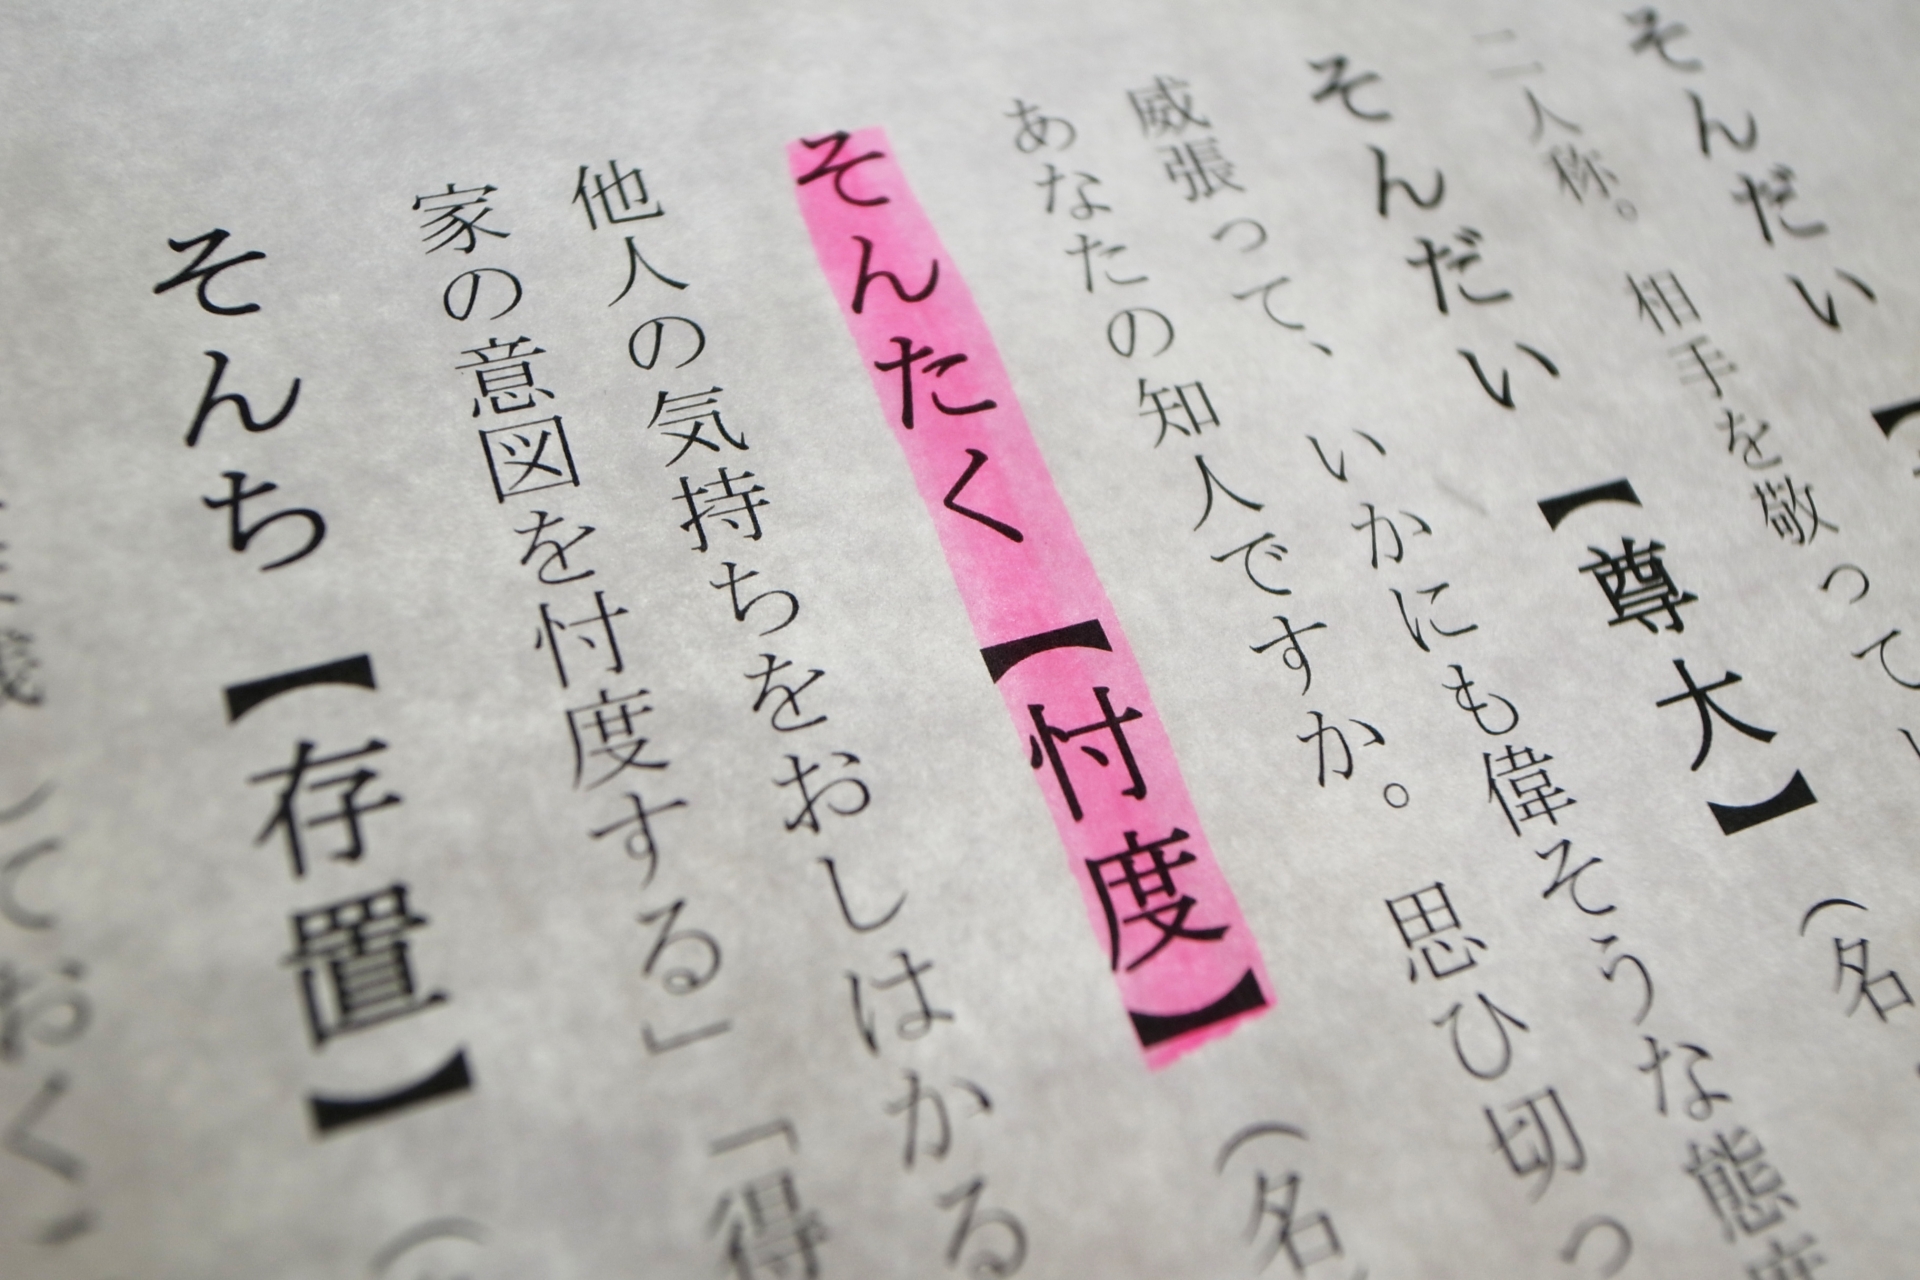 そんだい【
二人称。相手を敬ってい
そんだい【尊大】(名
威張って、いかにも偉そうな態度
あなたの知人ですか。思ひ切っ
そんたく【忖度】(名
他人の気持ちをおしはかる
家の意図を忖度する」「得
そんち【存置】(
ておく